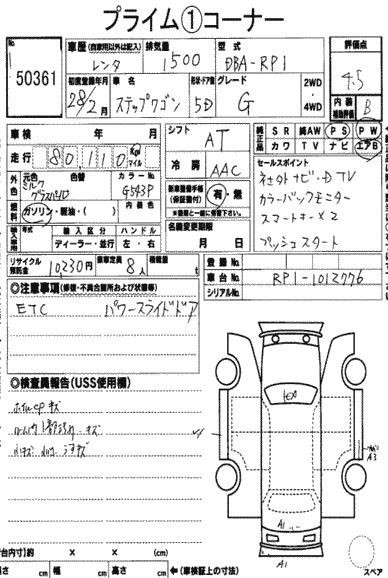 プライム①コーナー
No. 50361
車歴（自家用以外は記入） レンタ
排気量 1500
型式 DBA-RP1
評価点 4.5
初度登録年月 28/2月
車名 ステップワゴン
形状・ドア数 5D
グレード G
2WD・4WD
内装補助評価 B
車検 年 月
シフト AT
純正品 SR 純AW PS PW
カワ TV ナビ エアB
走行 80110 Km マイル
冷房 AAC
セールスポイント
外色 元色 色替 カラーNo.
ミルク グラスパール G543P
燃料 ガソリン・軽油・（ ） 内装色
新車整備手帳（保証書付） 有・無
※書類と一緒に後日下さい。
名義変更期限 月 日
カラーバックモニター
スマートキー×2
プッシュスタート
輸入車用 年式 輸入区分 ハンドル
ディーラー・並行 左・右
リサイクル預託金 10,230円
乗車定員 8人
積載量 t
登録No.
車台No. RP1-1012776
シリアルNo.
◎注意事項（修復・不具合箇所および状態等）
ETC パワースライドドア
◎検査員報告（USS使用欄）
ホイルCP キズ
小キズ
A3
A1
A1
スペア
台内寸）約 × × (cm)
長さ cm 幅 cm 高さ cm ←（車検証上の寸法）